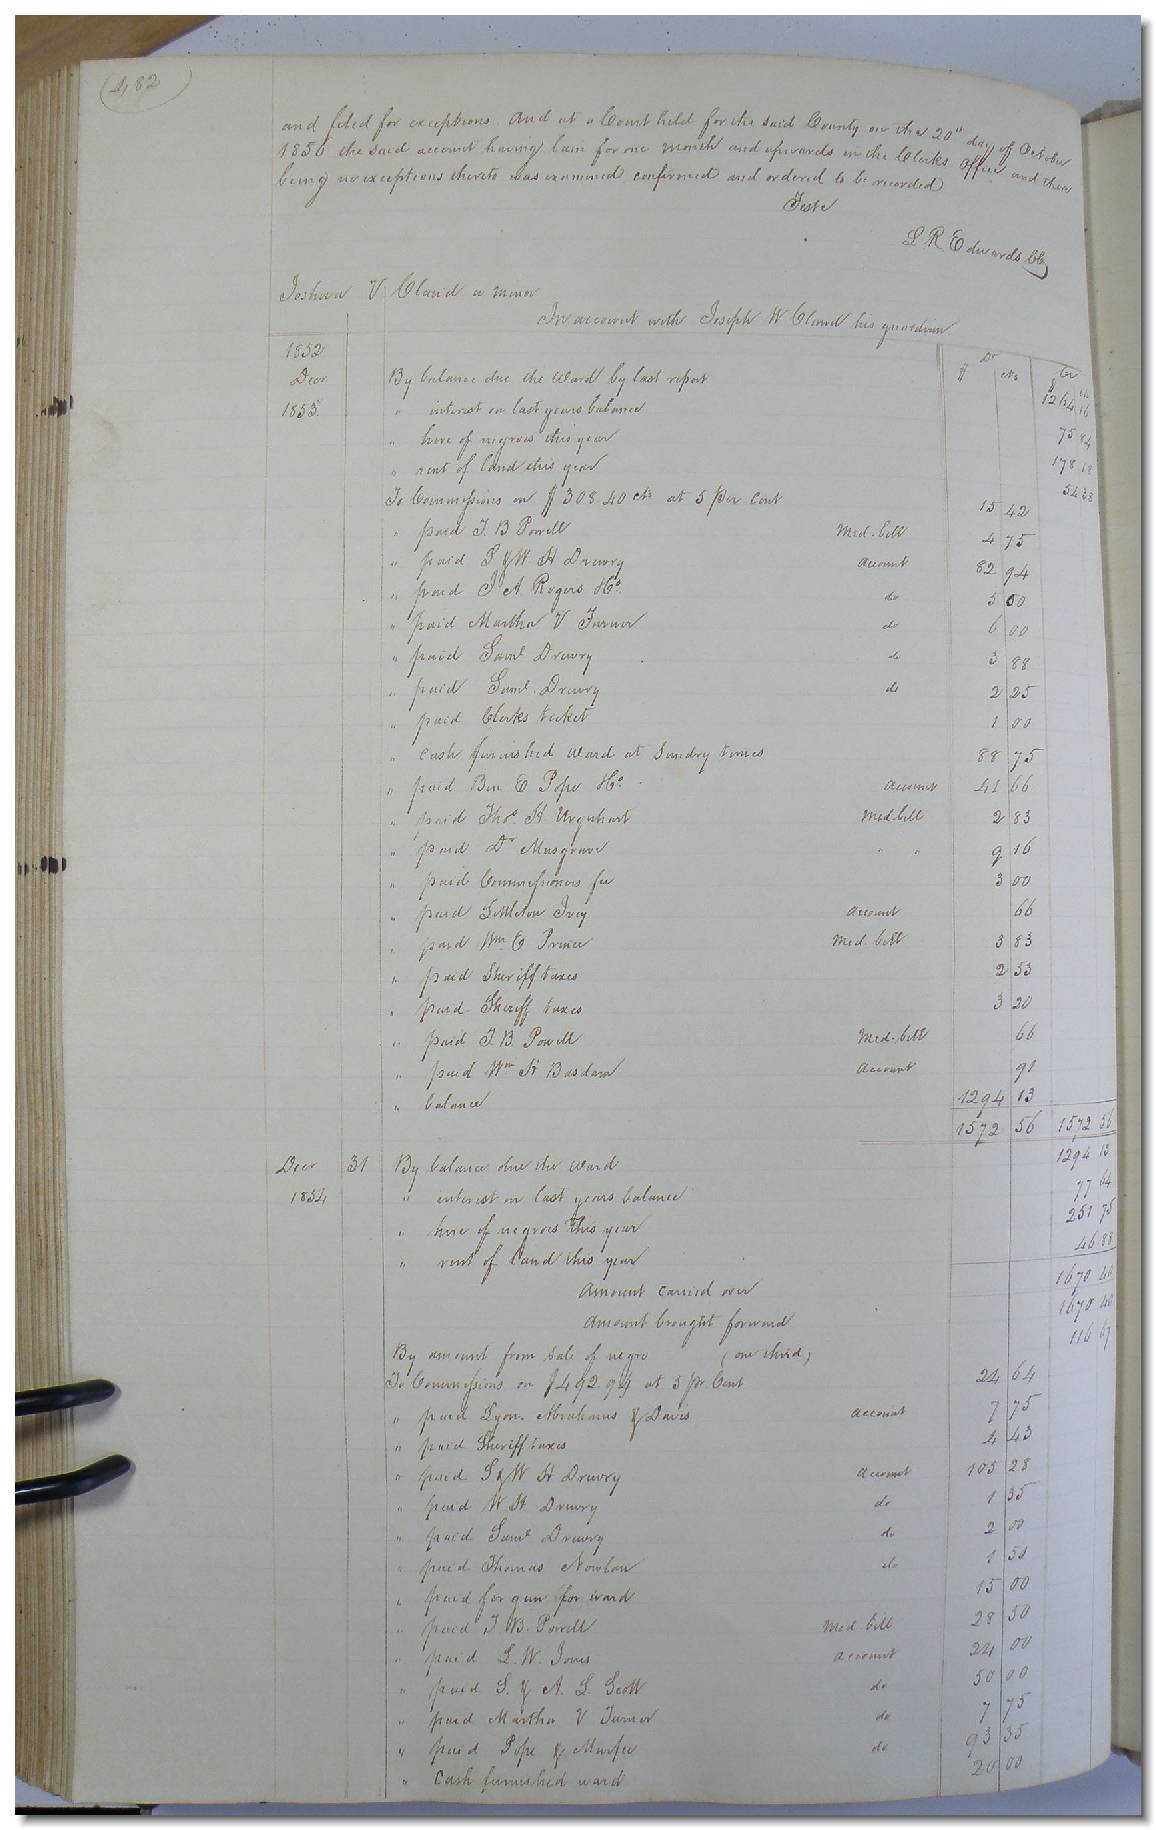 482
and filed for exceptions. And at a Court held for the said County on the 20th day of October
1856 the said account having lain for one month and upwards in the Clerks Office and there
being no exceptions thereto was examined confirmed and ordered to be recorded
Teste
L R Edwards Clk
Joshua V Claud a minor
In account with Joseph W Claud his guardian
Dr Cr
1852 $ cts $ cts
Decr By balance due the Ward by last report 1264 16
1853 " interest on last years balance 75 84
" hire of negroes this year 178 18
" rent of land this year 54 38
To Commissions on $308.40 cts at 5 per Cent 15 42
" paid T. B Powell Med. bill 4 75
" paid S & W H Drewry account 82 94
" paid J A Rogers &Co. do 5 00
" paid Martha V Turner do 6 00
" paid Saml Drewry do 3 88
" paid Saml. Drewry do 2 25
" paid Clerks ticket 1 00
" cash furnished Ward at Sundry times 88 75
" paid Ben E Pope &Co. account 41 66
" paid Thos. H Urquhart Med-bill 2 83
" paid Dr Musgrave " " 9 16
" paid Commissioners fee 3 00
" paid Littleton Ivey account 66
" paid Wm. E Prince Med. bill 3 83
" paid Sheriff taxes 2 53
" paid Sheriff taxes 3 20
" paid T. B. Powell Med-bill 66
" paid Wm H Basdam account 91
" balance 1294 13
1572 56 1572 56
Decr 31 By balance due the Ward 1294 13
1854 " interest on last years balance 77 64
" hire of negroes this year 251 75
" rent of land this year 46 88
1670 40
amount carried over 1670 40
amount brought forward
By amount from sale of negro (one third) 116 67
To Commissions on $492.94 at 5 pr Cent 24 64
" paid Lyon. Abrahams & Davis account 7 75
" paid Sheriff taxes 4 43
" paid S & W H Drewry account 105 28
" paid W. H. Drewry do 1 35
" paid Saml Drewry do 2 00
" paid Thomas Newlan do 1 50
" paid for gun for ward 15 00
" paid T. B. Powell Med. bill 28 50
" paid L. W. Jones account 24 00
" paid S. & A. L. Scott do 50 00
" paid Martha V Turner do 7 75
" paid Pope & Murfee do 93 35
" Cash furnished ward 20 00